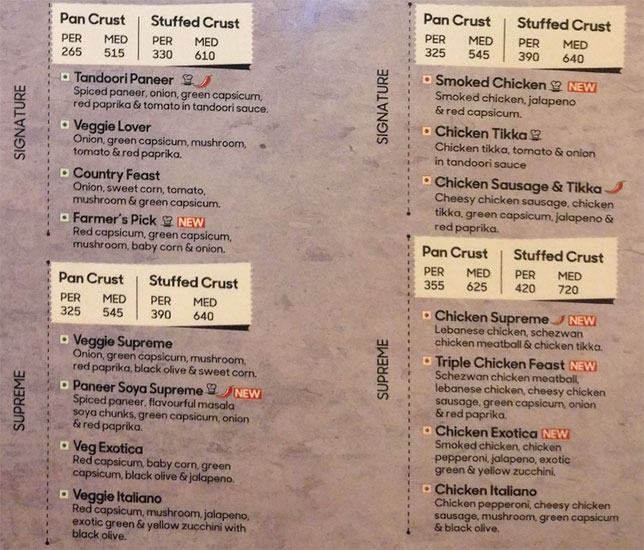 SIGNATURE
Pan Crust Stuffed Crust
PER MED PER MED
265 515 330 610
Tandoori Paneer
Spiced paneer, onion, green capsicum,
red paprika & tomato in tandoori sauce.
Veggie Lover
Onion, green capsicum, mushroom,
tomato & red paprika.
Country Feast
Onion, sweet corn, tomato,
mushroom & green capsicum.
Farmer's Pick NEW
Red capsicum, green capsicum,
mushroom, baby corn & onion.
SUPREME
Pan Crust Stuffed Crust
PER MED PER MED
325 545 390 640
Veggie Supreme
Onion, green capsicum, mushroom,
red paprika, black olive & sweet corn.
Paneer Soya Supreme NEW
Spiced paneer, flavourful masala
soya chunks, green capsicum, onion
& red paprika.
Veg Exotica
Red capsicum, baby corn, green
capsicum, black olive & jalapeno.
Veggie Italiano
Red capsicum, mushroom, jalapeno,
exotic green & yellow zucchini with
black olive.
SIGNATURE
Pan Crust Stuffed Crust
PER MED PER MED
325 545 390 640
Smoked Chicken NEW
Smoked chicken, jalapeno
& red capsicum.
Chicken Tikka
Chicken tikka, tomato & onion
in tandoori sauce
Chicken Sausage & Tikka
Cheesy chicken sausage, chicken
tikka, green capsicum, jalapeno &
red paprika.
SUPREME
Pan Crust Stuffed Crust
PER MED PER MED
355 625 420 720
Chicken Supreme NEW
Lebanese chicken, schezwan
chicken meatball & chicken tikka.
Triple Chicken Feast NEW
Schezwan chicken meatball,
lebanese chicken, cheesy chicken
sausage, green capsicum, onion
& red paprika.
Chicken Exotica NEW
Smoked chicken, chicken
pepperoni, jalapeno, exotic
green & yellow zucchini.
Chicken Italiano
Chicken pepperoni, cheesy chicken
sausage, mushroom, green capsicum
& black olive.